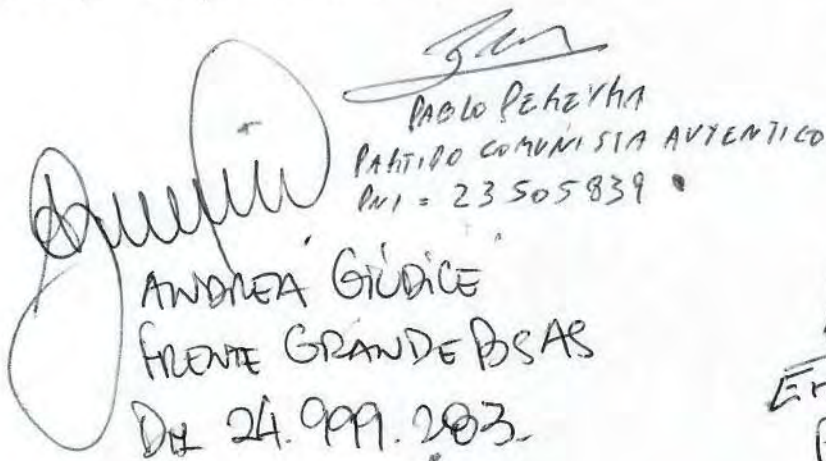 PABLO PEREYRA
PARTIDO COMUNISTA AUTENTICO
DNI = 23505839
ANDREA GIUDICE
FRENTE GRANDE BSAS
DNI 24.999.203.